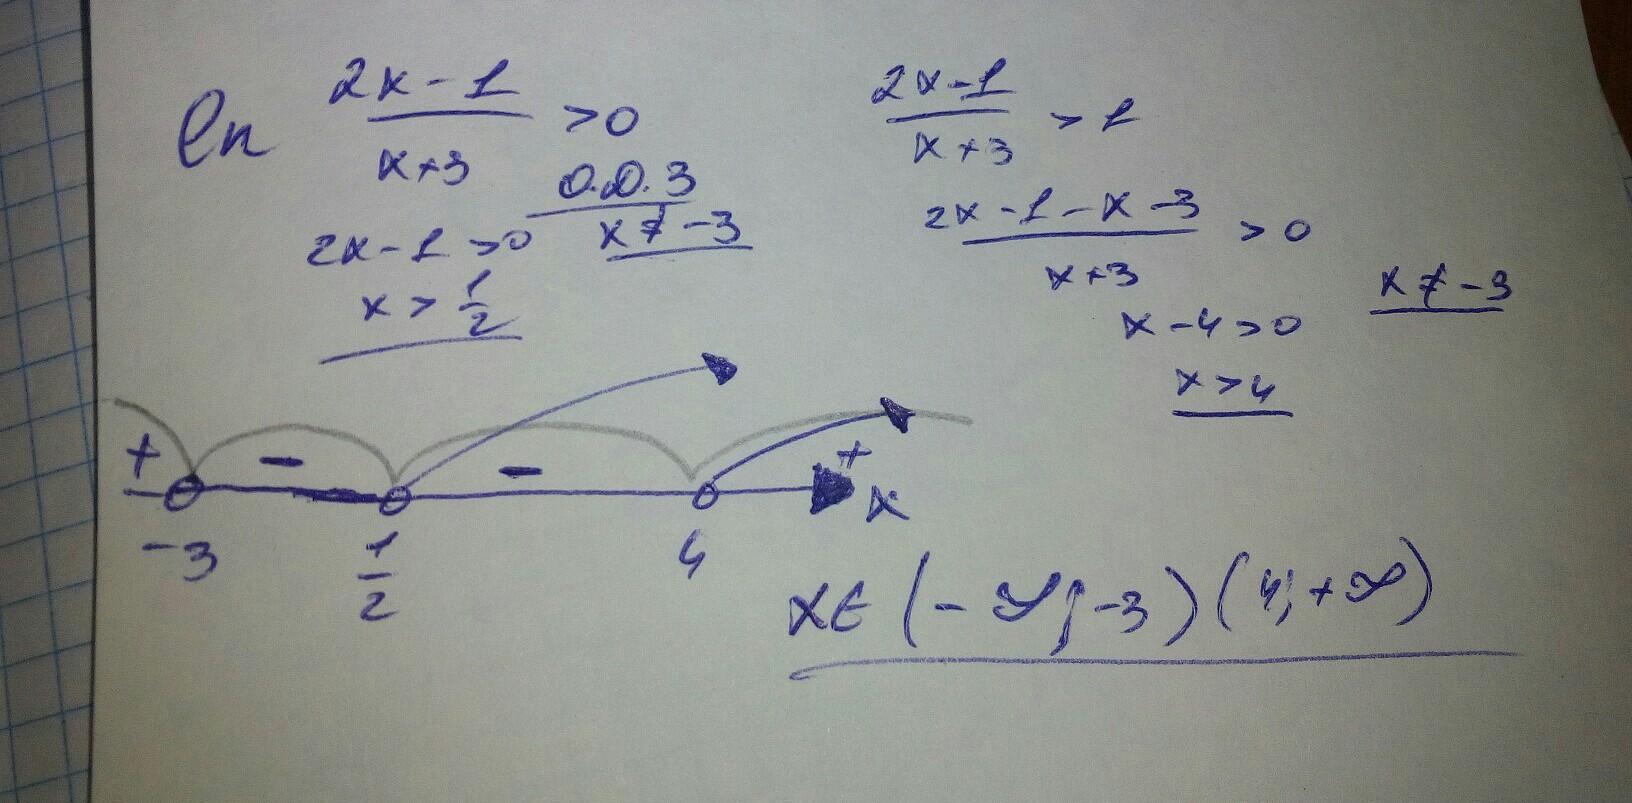 ln (2x-1)/(x+3) > 0
О.Д.З
x ≠ -3
2x-1 >0
x > 1/2
(2x-1)/(x+3) > 1
(2x-1-x-3)/(x+3) > 0
x ≠ -3
x-4>0
x>4
+ - - +
-3 1/2 4 x
xϵ (-∞; -3) (4; +∞)